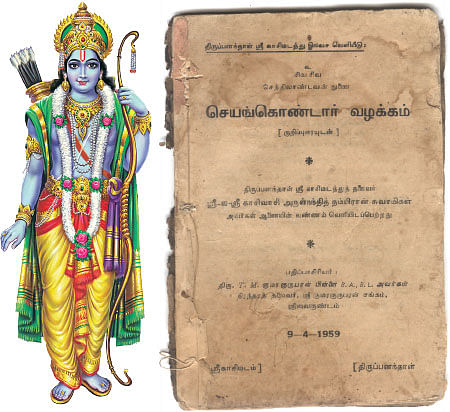 திருப்பனந்தாள் ஸ்ரீ காசிமடத்து இலவச வெளியீடு:
உ
சிவ சிவ
செந்திலாண்டவன் துணை
செயங்கொண்டார் வழக்கம்
[ குறிப்புரையுடன் ]
திருப்பனந்தாள் ஸ்ரீ காசிமடத்துத் தலைவர்
ஸ்ரீ-ல-ஸ்ரீ காசிவாசி அருணந்தித் தம்பிரான் சுவாமிகள்
அவர்கள் ஆணையின் வண்ணம் வெளியிடப்பெற்றது
பதிப்பாசிரியர் :
திரு. T. M. குமரகுருபரன் பிள்ளை B. A., B. L. அவர்கள்
ஸ்ரீ குமரகுருபரன் சங்கம்,
ஸ்ரீவைகுண்டம்
9-4-1959
ஸ்ரீகாசிமடம்] [திருப்பனந்தாள்